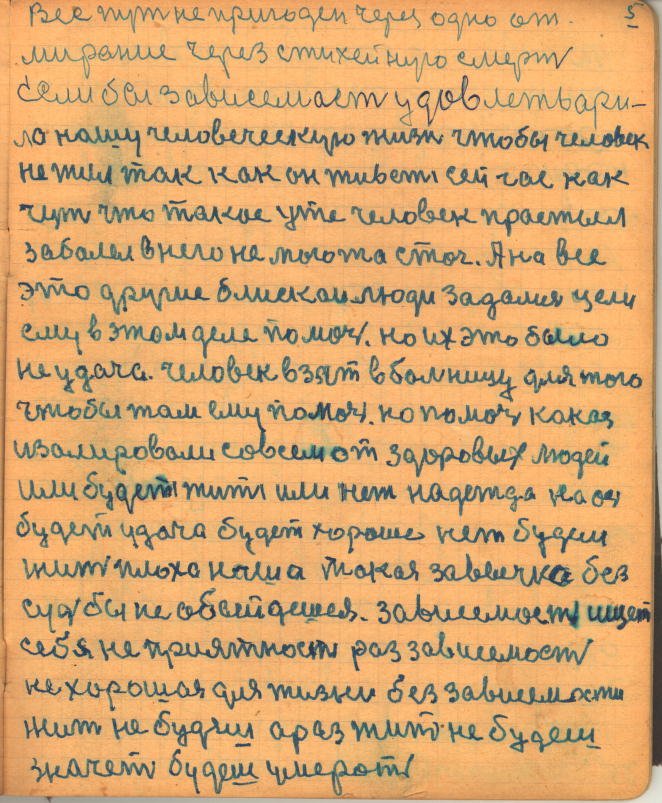 5
Весь путь не пригоден через одно от-
мирание через стихейную смерть
Если бы зависемасть удовлетвари-
ла нашу человеческую жизнь чтобы человек
не жил так как он живеть сей час как
чуть что такое уже человек прастыл
забалел внего не мога сточ. А на все
это другие блиские люди задался цели
ему в этом деле помоч. но их это было
не удача. человек взят в балницу для того
чтобы там ему помоч. но помоч как
изалировали совсем от здоровых людей
или будеть жить или нет надежда на
будет удача будет хороше нет будеш
жить плоха наша такая завеичка без
судьбы не обайдешся. зависемость ищет
себя не приятность раз зависемость
не хорошая для жизни без зависемости
жить не будеш а раз жить не будеш
значеть будеш умероть